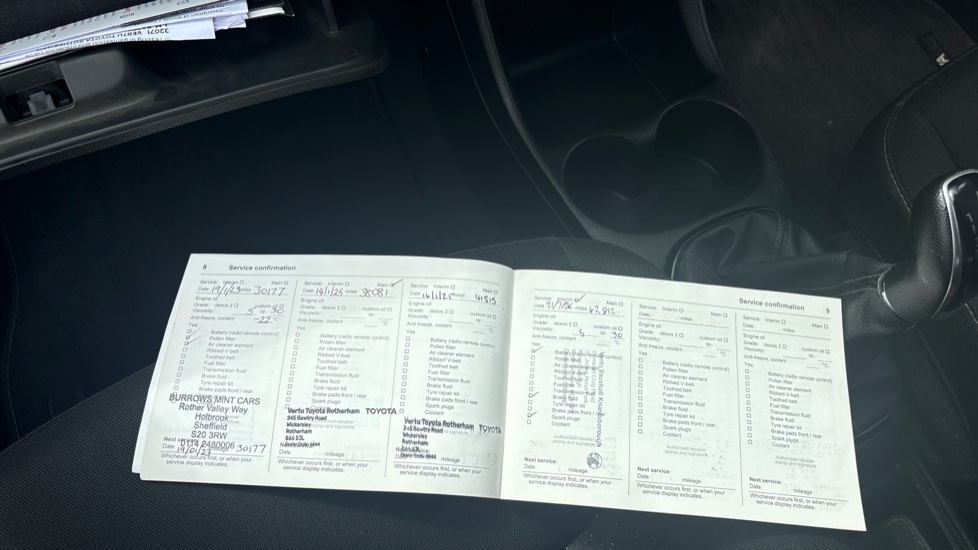 32071 VERTU TOYOTA ROTHERHAM
8 Service confirmation
Service: Interim ☐ Main ☐
Date 19/1/23 miles 30177
Engine oil
Grade: dexos 2 ☐ custom oil ☐
Viscosity: 5 W- 30
Anti-freeze, coolant -22 °C
Yes
☐ Battery (radio remote control)
☐ Pollen filter
☐ Air cleaner element
☐ Ribbed V-belt
☐ Toothed belt
☐ Fuel filter
☐ Transmission fluid
☐ Brake fluid
☐ Tyre repair kit
☐ Brake pads front / rear
BURROWS MINT CARS
Rother Valley Way
Holbrook
Sheffield
S20 3RW
0114 2480006
Next
19/01/23 30177
Whichever occurs first, or when your
service display indicates.
Service: Interim ☐ Main ☑
Date 14/1/25 miles 38081
Engine oil
Grade: dexos 2 ☐ custom oil ☐
Viscosity: W-
Anti-freeze, coolant °C
Yes
☐ Battery (radio remote control)
☐ Pollen filter
☐ Air cleaner element
☐ Ribbed V-belt
☐ Toothed belt
☐ Fuel filter
☐ Transmission fluid
☐ Brake fluid
☐ Tyre repair kit
☐ Brake pads front / rear
☐ Spark plugs
Vertu Toyota Rotherham TOYOTA
245 Bawtry Road
Wickersley
Rotherham
S66 2JL
Date mileage
Whichever occurs first, or when your
service display indicates.
Service: Interim ☐ Main ☐
Date miles 41515
Engine oil
Grade: dexos 2 ☐ custom oil ☐
Viscosity: W-
Anti-freeze, coolant °C
Yes
☐ Battery (radio remote control)
☐ Pollen filter
☐ Air cleaner element
☐ Ribbed V-belt
☐ Toothed belt
☐ Fuel filter
☐ Transmission fluid
☐ Brake fluid
☐ Tyre repair kit
☐ Brake pads front / rear
☐ Spark plugs
☐ Coolant
Vertu Toyota Rotherham TOYOTA
245 Bawtry Road
Wickersley
Rotherham
S66 2JL
Date mileage
Whichever occurs first, or when your
service display indicates.
Service: Interim ☑ Main ☐
Date miles 42,812
Engine oil
Grade: dexos 2 ☐ custom oil ☐
Viscosity: 5 W- 30
Anti-freeze, coolant °C
Yes
Next service:
Date mileage
Whichever occurs first, or when your
service display indicates.
Service confirmation 9
Service: Interim ☐ Main ☐
Date miles
Engine oil
Grade: dexos 2 ☐ custom oil ☐
Viscosity: W-
Anti-freeze, coolant °C
Yes
☐ Battery (radio remote control)
☐ Pollen filter
☐ Air cleaner element
☐ Ribbed V-belt
☐ Toothed belt
☐ Fuel filter
☐ Transmission fluid
☐ Brake fluid
☐ Tyre repair kit
☐ Brake pads front / rear
☐ Spark plugs
☐ Coolant
Next service:
Date mileage
Whichever occurs first, or when your
service display indicates.
Service: Interim ☐ Main ☐
Date miles
Engine oil
Grade: dexos 2 ☐ custom oil ☐
Viscosity: W-
Anti-freeze, coolant °C
Yes
☐ Battery (radio remote control)
☐ Pollen filter
☐ Air cleaner element
☐ Ribbed V-belt
☐ Toothed belt
☐ Fuel filter
☐ Transmission fluid
☐ Brake fluid
☐ Tyre repair kit
☐ Brake pads front / rear
☐ Spark plugs
☐ Coolant
Authorised repairer
stamp and signature
Next service:
Date mileage
Whichever occurs first, or when your
service display indicates.